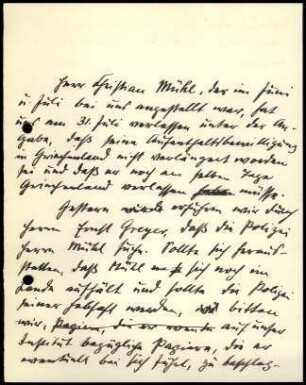 Herr Christian Mühl, der im Juni
u Juli bei uns angestellt war, hat
uns am 31. Juli verlassen unter der An-
gabe, daß seine Aufenthaltsbewilligung
in Griechenland nicht verlängert worden
sei und daß er noch am selben Tage
Griechenland verlassen müsse.
Gestern erfuhren wir durch
Herrn Ernst Greger, daß die Polizei
Herrn Mühl suche. Sollte sich heraus-
stellen, daß Mühl sich noch im
Lande aufhält und sollte die Polizei
seiner habhaft werden, bitten
wir, auf unser
Institut bezügliche Papiere, die er
eventuell bei sich führt, zu beschlag-